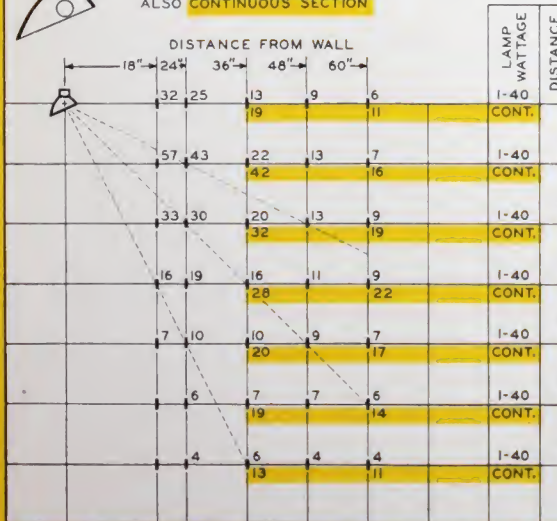 ALSO CONTINUOUS SECTION
DISTANCE FROM WALL
18" 24" 36" 48" 60"
LAMP WATTAGE
DISTANCE
32 25 13 9 6 1-40
19 11 CONT.
57 43 22 13 7 1-40
42 16 CONT.
33 30 20 13 9 1-40
32 19 CONT.
16 19 16 11 9 1-40
28 22 CONT.
7 10 10 9 7 1-40
20 17 CONT.
6 7 7 6 1-40
19 14 CONT.
4 6 4 4 1-40
13 11 CONT.